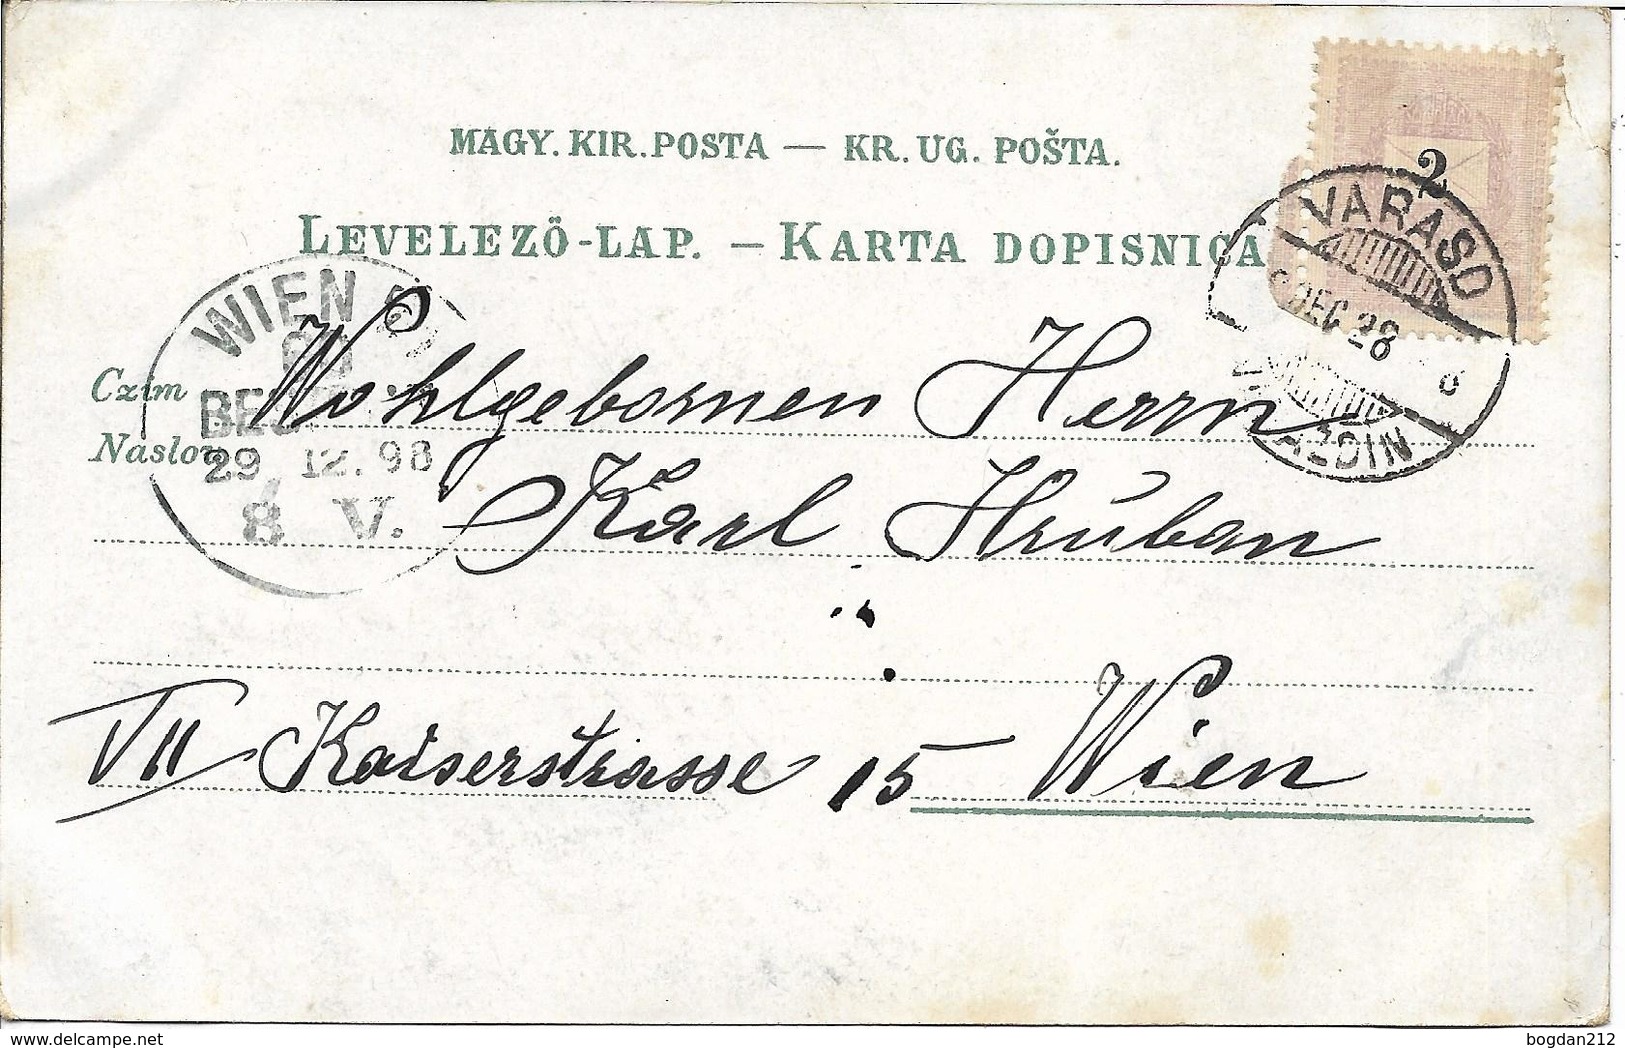 MAGY. KIR. POSTA — KR. UG. POŠTA.
LEVELEZŐ-LAP. — KARTA DOPISNICA
2
VARASD
DEC 28
WIEN
29. 12. 98
8 V.
Czím
Naslov
Wohlgebornen Herrn
Karl Hrúban
VII Kaiserstrasse 15 Wien
delcampe.net
bogdan212